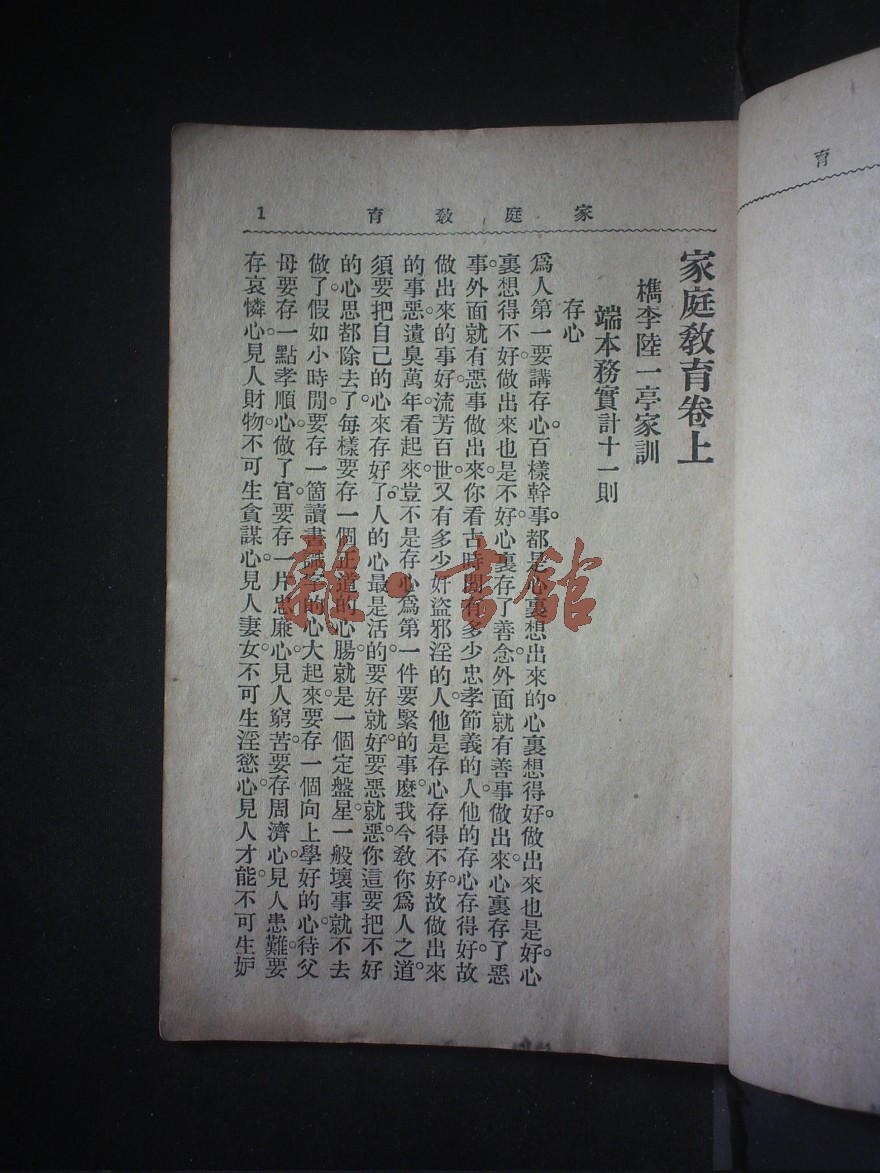 家庭教育
1
家庭教育卷上
檇李陸一亭家訓
端本務實計十一則
存心
爲人第一要講存心。百樣幹事。都是心裏想出來的。心裏想得好。做出來也是好。心
裏想得不好。做出來也是不好。心裏存了善念。外面就有善事做出來。心裏存了惡
事。外面就有惡事做出來。你看古時間有多少忠孝節義的人。他的存心存得好。故
做出來的事好。流芳百世。又有多少奸盜邪淫的人。他是存心存得不好。故做出來
的事惡。遺臭萬年。看起來。豈不是存心爲第一件要緊的事麽。我今教你爲人之道。
須要把自己的心來存好了。人的心最是活的。要好就好。要惡就惡。你這要把不好
的心思都除去了。每樣要存一個正道的心腸。就是一個定盤星一般。壞事就不去
做了。假如小時閒。要存一箇讀書識字的心。大起來。要存一個向上學好的心。待父
母要存一點孝順心。做了官。要存一片忠廉心。見人窮苦。要存周濟心。見人患難。要
存哀憐心。見人財物。不可生貪謀心。見人妻女。不可生淫慾心。見人才能。不可生妒
育
雜·書館